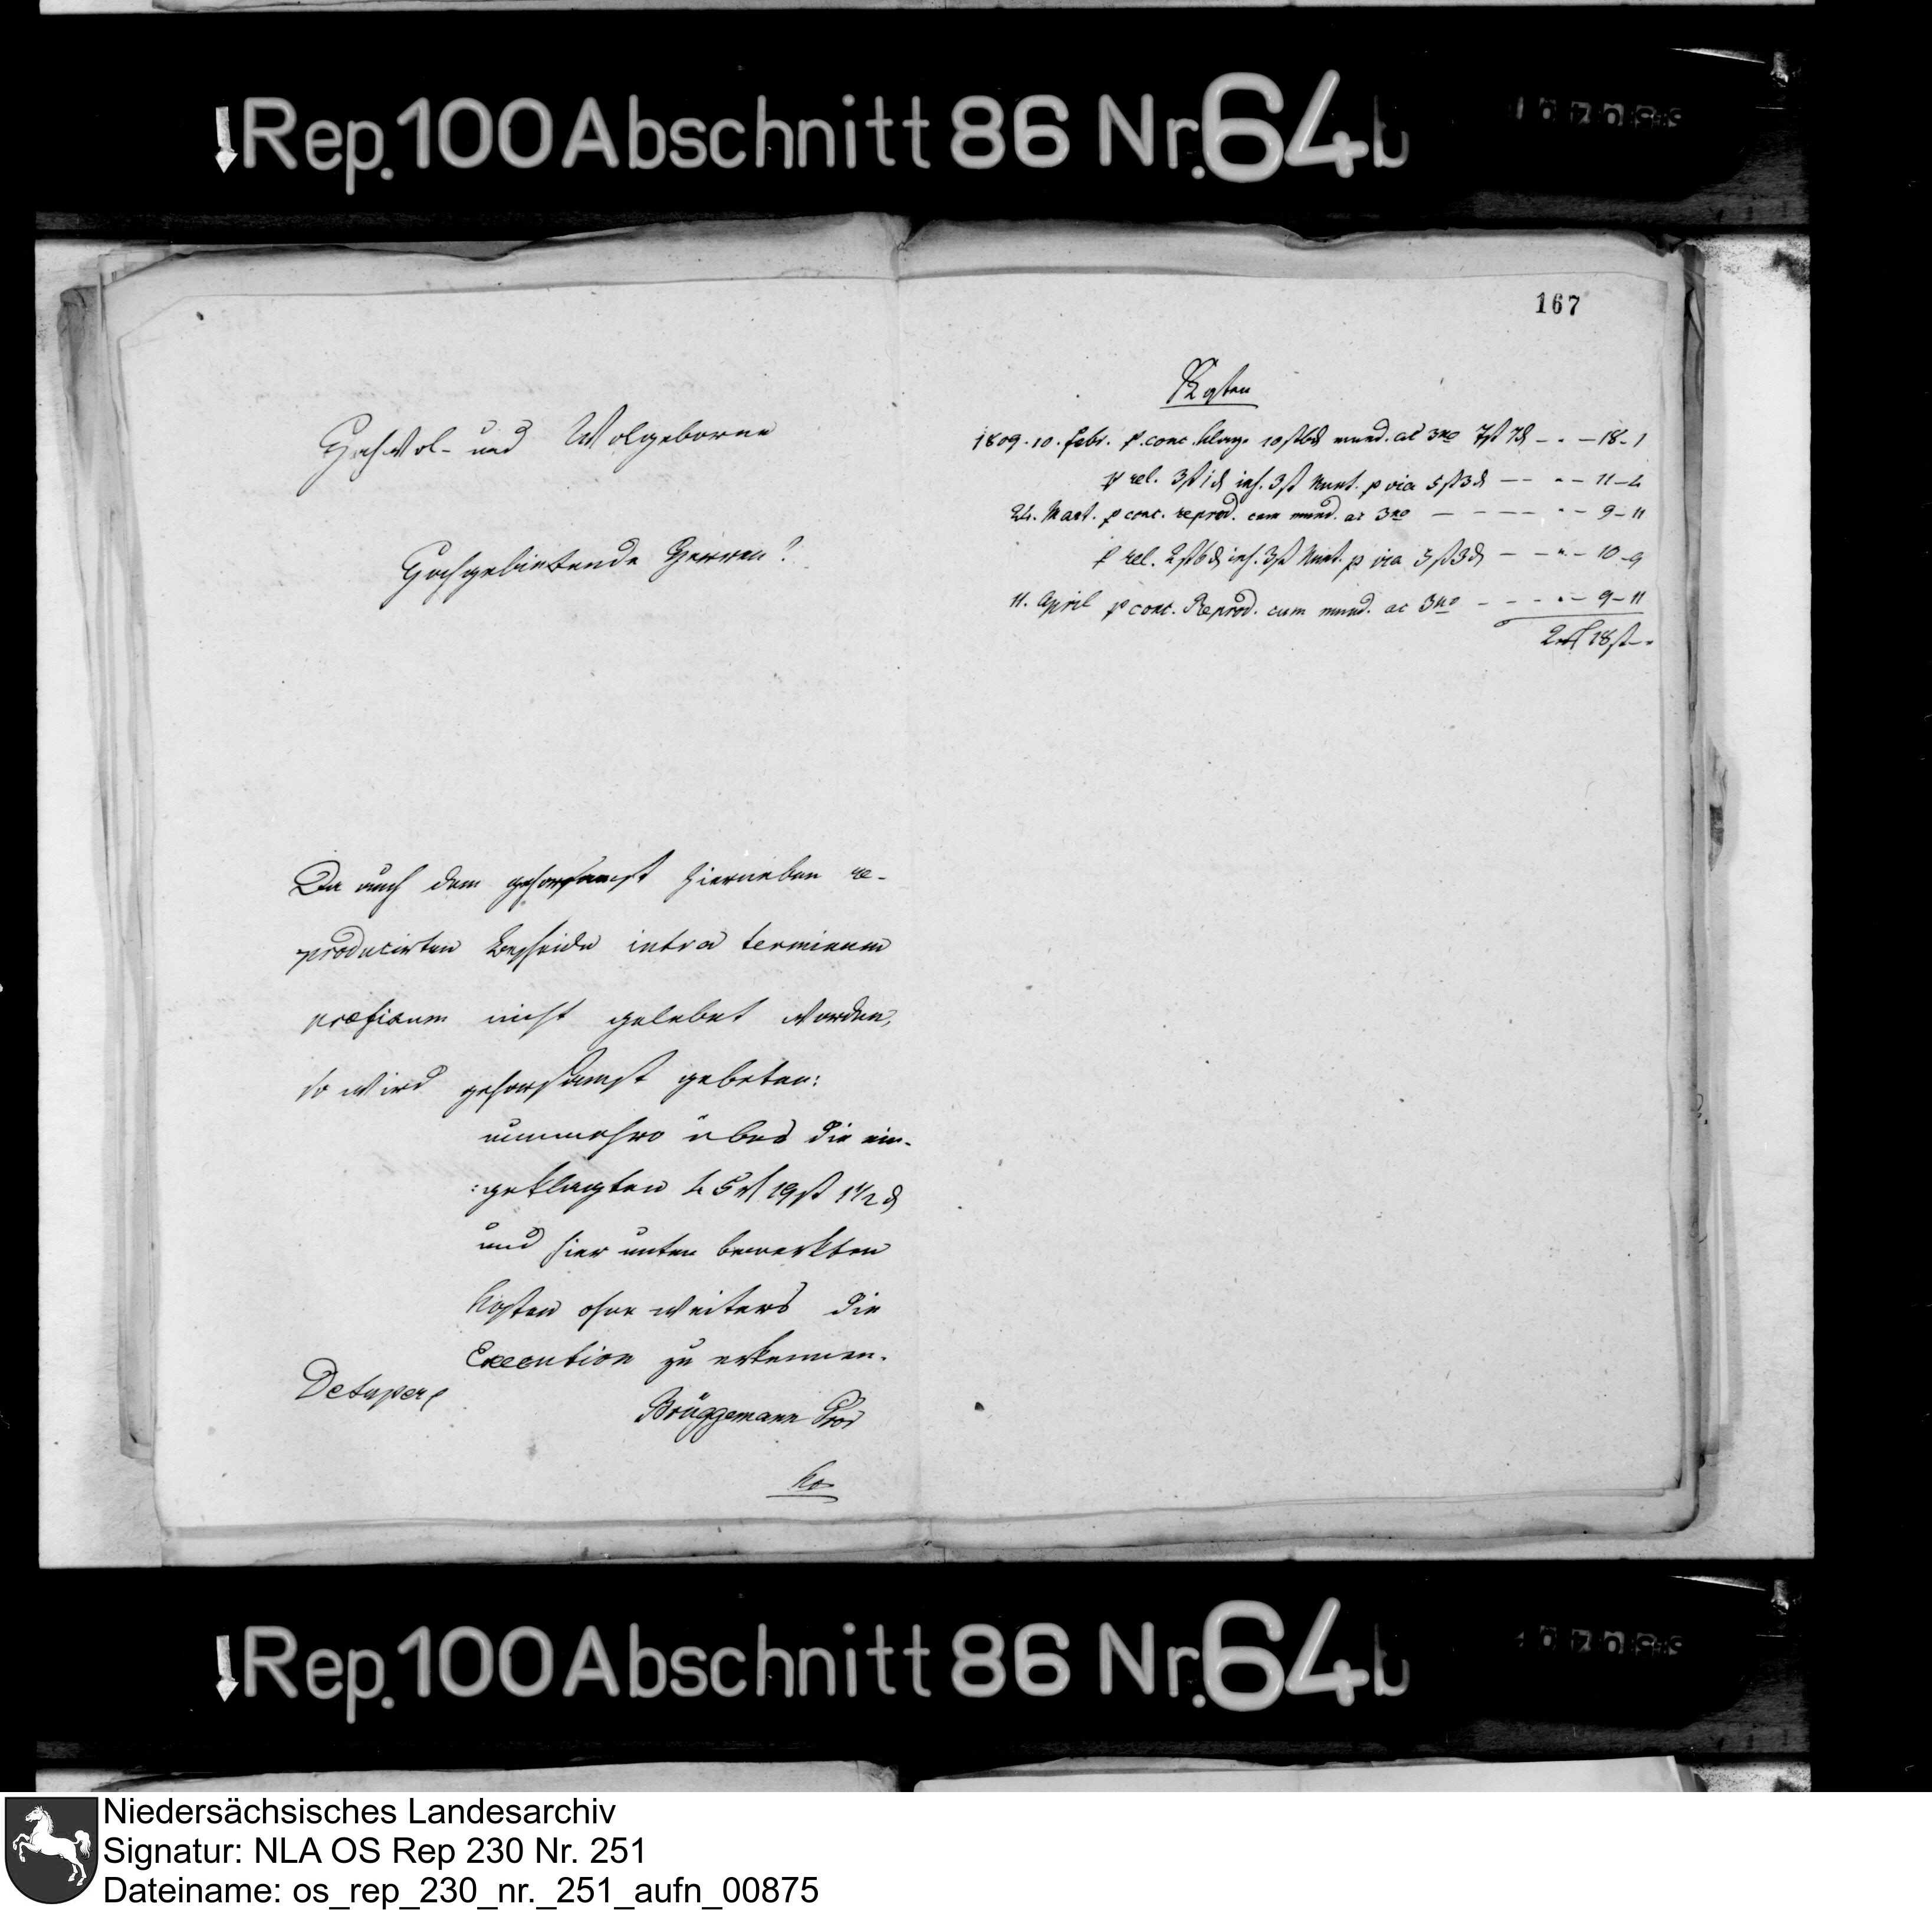 Rep. 100 Abschnitt 86 Nr. 64b
Hochwol- und Wolgeborne
Hochgebietende Herren!
Da auch dem gehorsamst hierneben re-
producirten Bescheide intra terminum
præfixum nicht gelebet worden,
so wird gehorsamst gebeten:
nunmehro über die ein-
geklagten 45 rt 19 ß 1 1/2 d
und hier unten bemerkten
Kosten ohne weiters die
Execution zu erkennen.
Desuper
Brüggemann Pror
Ko
167
Kosten
1809. 10. Febr. p. conc. Klage 10 ß 6 d mund. ac 3no 7 ß 7 d - . - 18 - 1
p rel. 3 ß 1 d ins. 3 ß Nunt. p via 5 ß 3 d - - . - 11 - 4
24. Mart. p conc. reprod. cum mund. ac 3no - - - - . - 9 - 11
p rel. 2 ß 6 d ins. 3 ß Nunt. p via 5 ß 3 d - - . - 10 - 9
11. April p conc. Reprod. cum mund. ac 3no - - - . - 9 - 11
2 rt 18 ß - .
Rep. 100 Abschnitt 86 Nr. 64b
Niedersächsisches Landesarchiv
Signatur: NLA OS Rep 230 Nr. 251
Dateiname: os_rep_230_nr._251_aufn_00875